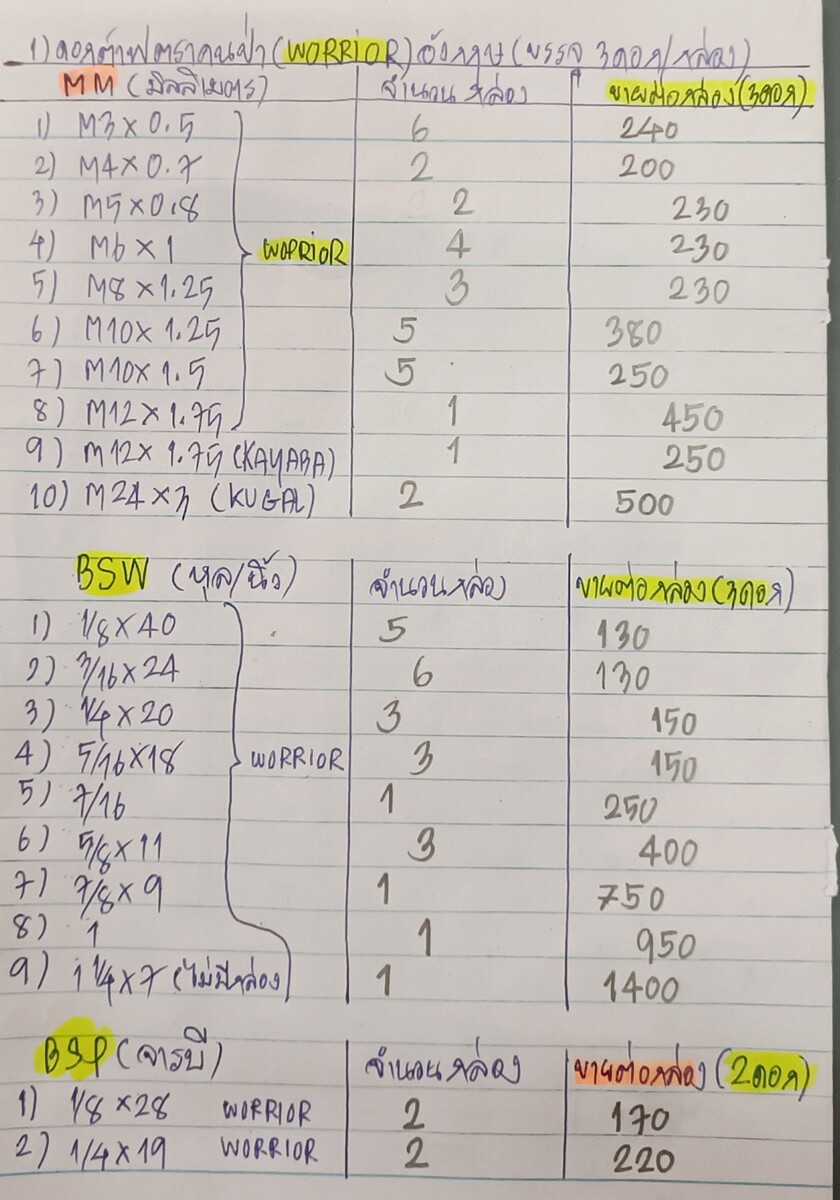 1) ดอกต๊าฟตราคนป่า (WORRIOR) อังกฤษ (บรรจุ 3ดอก/กล่อง)
MM (มิลลิเมตร) จำนวนกล่อง ขายต่อกล่อง (3ดอก)
1) M3 x 0.5 6 240
2) M4 x 0.7 2 200
3) M5 x 0.8 2 230
4) M6 x 1 WORRIOR 4 230
5) M8 x 1.25 3 230
6) M10 x 1.25 5 380
7) M10 x 1.5 5 250
8) M12 x 1.75 1 450
9) M12 x 1.75 (KAYABA) 1 250
10) M24 x 3 (KUGAL) 2 500
BSW (หุล/นิ้ว) จำนวนกล่อง ขายต่อกล่อง (3ดอก)
1) 1/8 x 40 5 130
2) 3/16 x 24 6 130
3) 1/4 x 20 3 150
4) 5/16 x 18 WORRIOR 3 150
5) 7/16 1 250
6) 5/8 x 11 3 400
7) 7/8 x 9 1 750
8) 1 1 950
9) 1 1/4 x 7 (ไม่มีกล่อง 1 1400
BSP (จารบี) จำนวนกล่อง ขายต่อกล่อง (2ดอก)
1) 1/8 x 28 WORRIOR 2 170
2) 1/4 x 19 WORRIOR 2 220